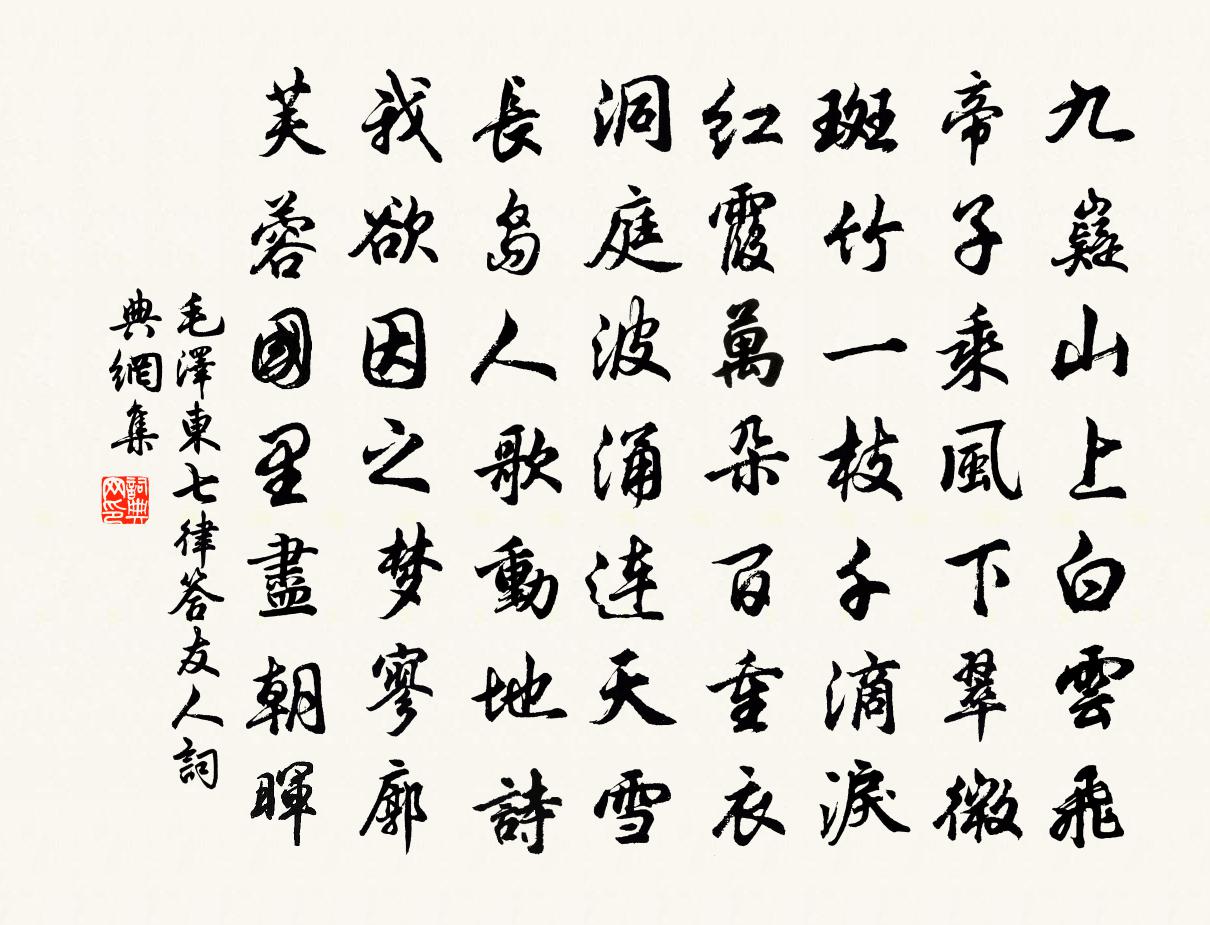 九嶷山上白雲飛
帝子乘風下翠微
斑竹一枝千滴淚
紅霞萬朵百重衣
洞庭波涌連天雪
長島人歌動地詩
我欲因之梦寥廓
芙蓉國里盡朝暉
毛澤東七律答友人詞
典網集
詞典网印